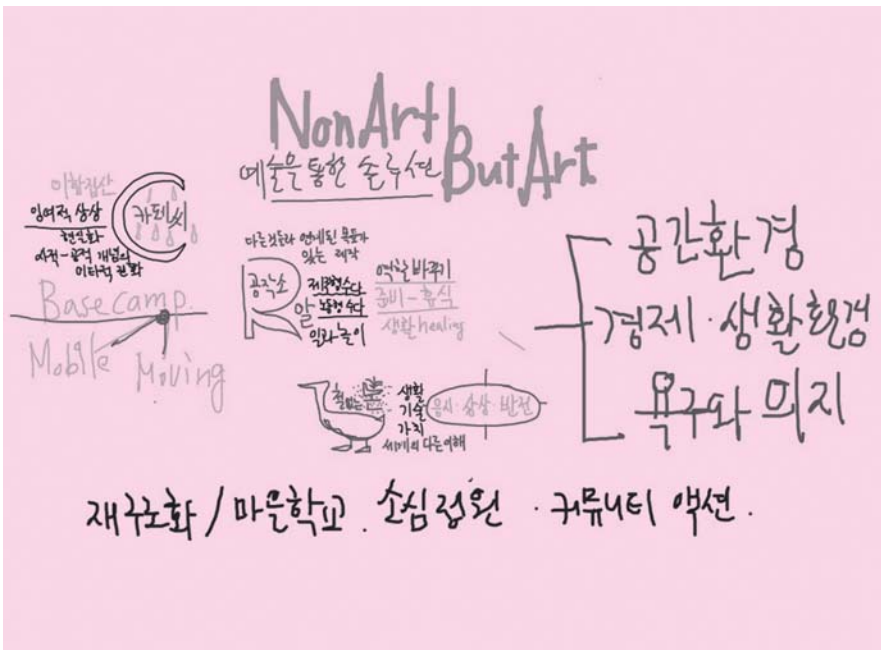 NonArt
ButArt
예술을 통한 솔루션
이합집산
잉여적 상상
현실화
사적-공적 개념의
이타적 전환
카페씨
Basecamp.
Mobile
Moving
다른것들과 연계된 목록가
있는 제작
공작소
R
알
제주형수다
농형수다
일과 놀이
역할바꾸기
준비-휴식
생활healing
철없는
생활
기술
가치
세계의 다른이해
응시·상상·반전
공간환경
경제·생활환경
욕구와 의지
재구조화 / 마을학교. 소심정원 · 커뮤니티 액션.